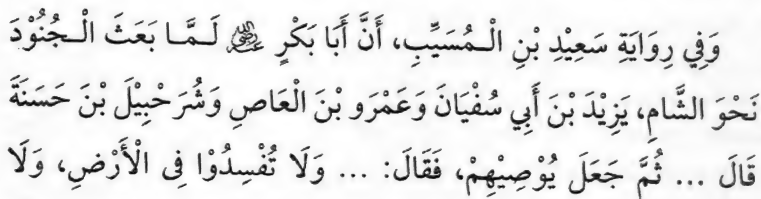 وَفِي رِوَايَةِ سَعِيْدِ بْنِ الْمُسَيِّبِ، أَنَّ أَبَا بَكْرٍ ﷁ لَمَّا بَعَثَ الْجُنُوْدَ
نَحْوَ الشَّامِ، يَزِيْدَ بْنَ أَبِي سُفْيَانَ وَعَمْرَو بْنَ الْعَاصِ وَشُرَحْبِيْلَ بْنَ حَسَنَةَ
قَالَ ... ثُمَّ جَعَلَ يُوْصِيْهِمْ، فَقَالَ: ... وَلَا تُفْسِدُوْا فِى الْأَرْضِ، وَلَا